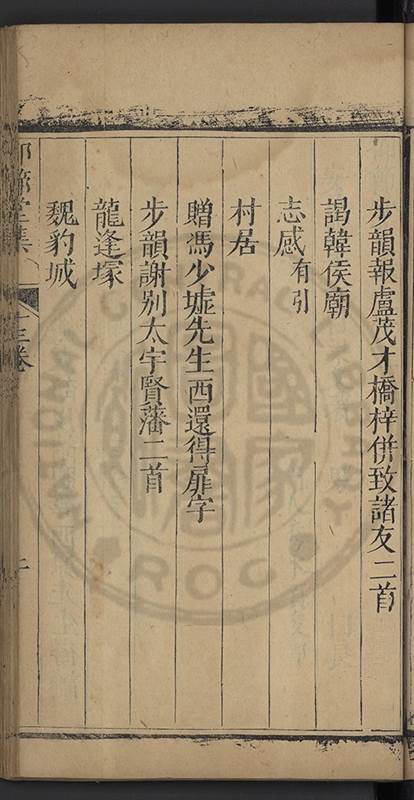 步韻報盧茂才橋梓併致諸友二首
謁韓侯廟
志感有引
村居
贈馮少墟先生西還得扉字
步韻謝别太宇賢藩二首
龍逢塚
魏豹城
堂集
卷